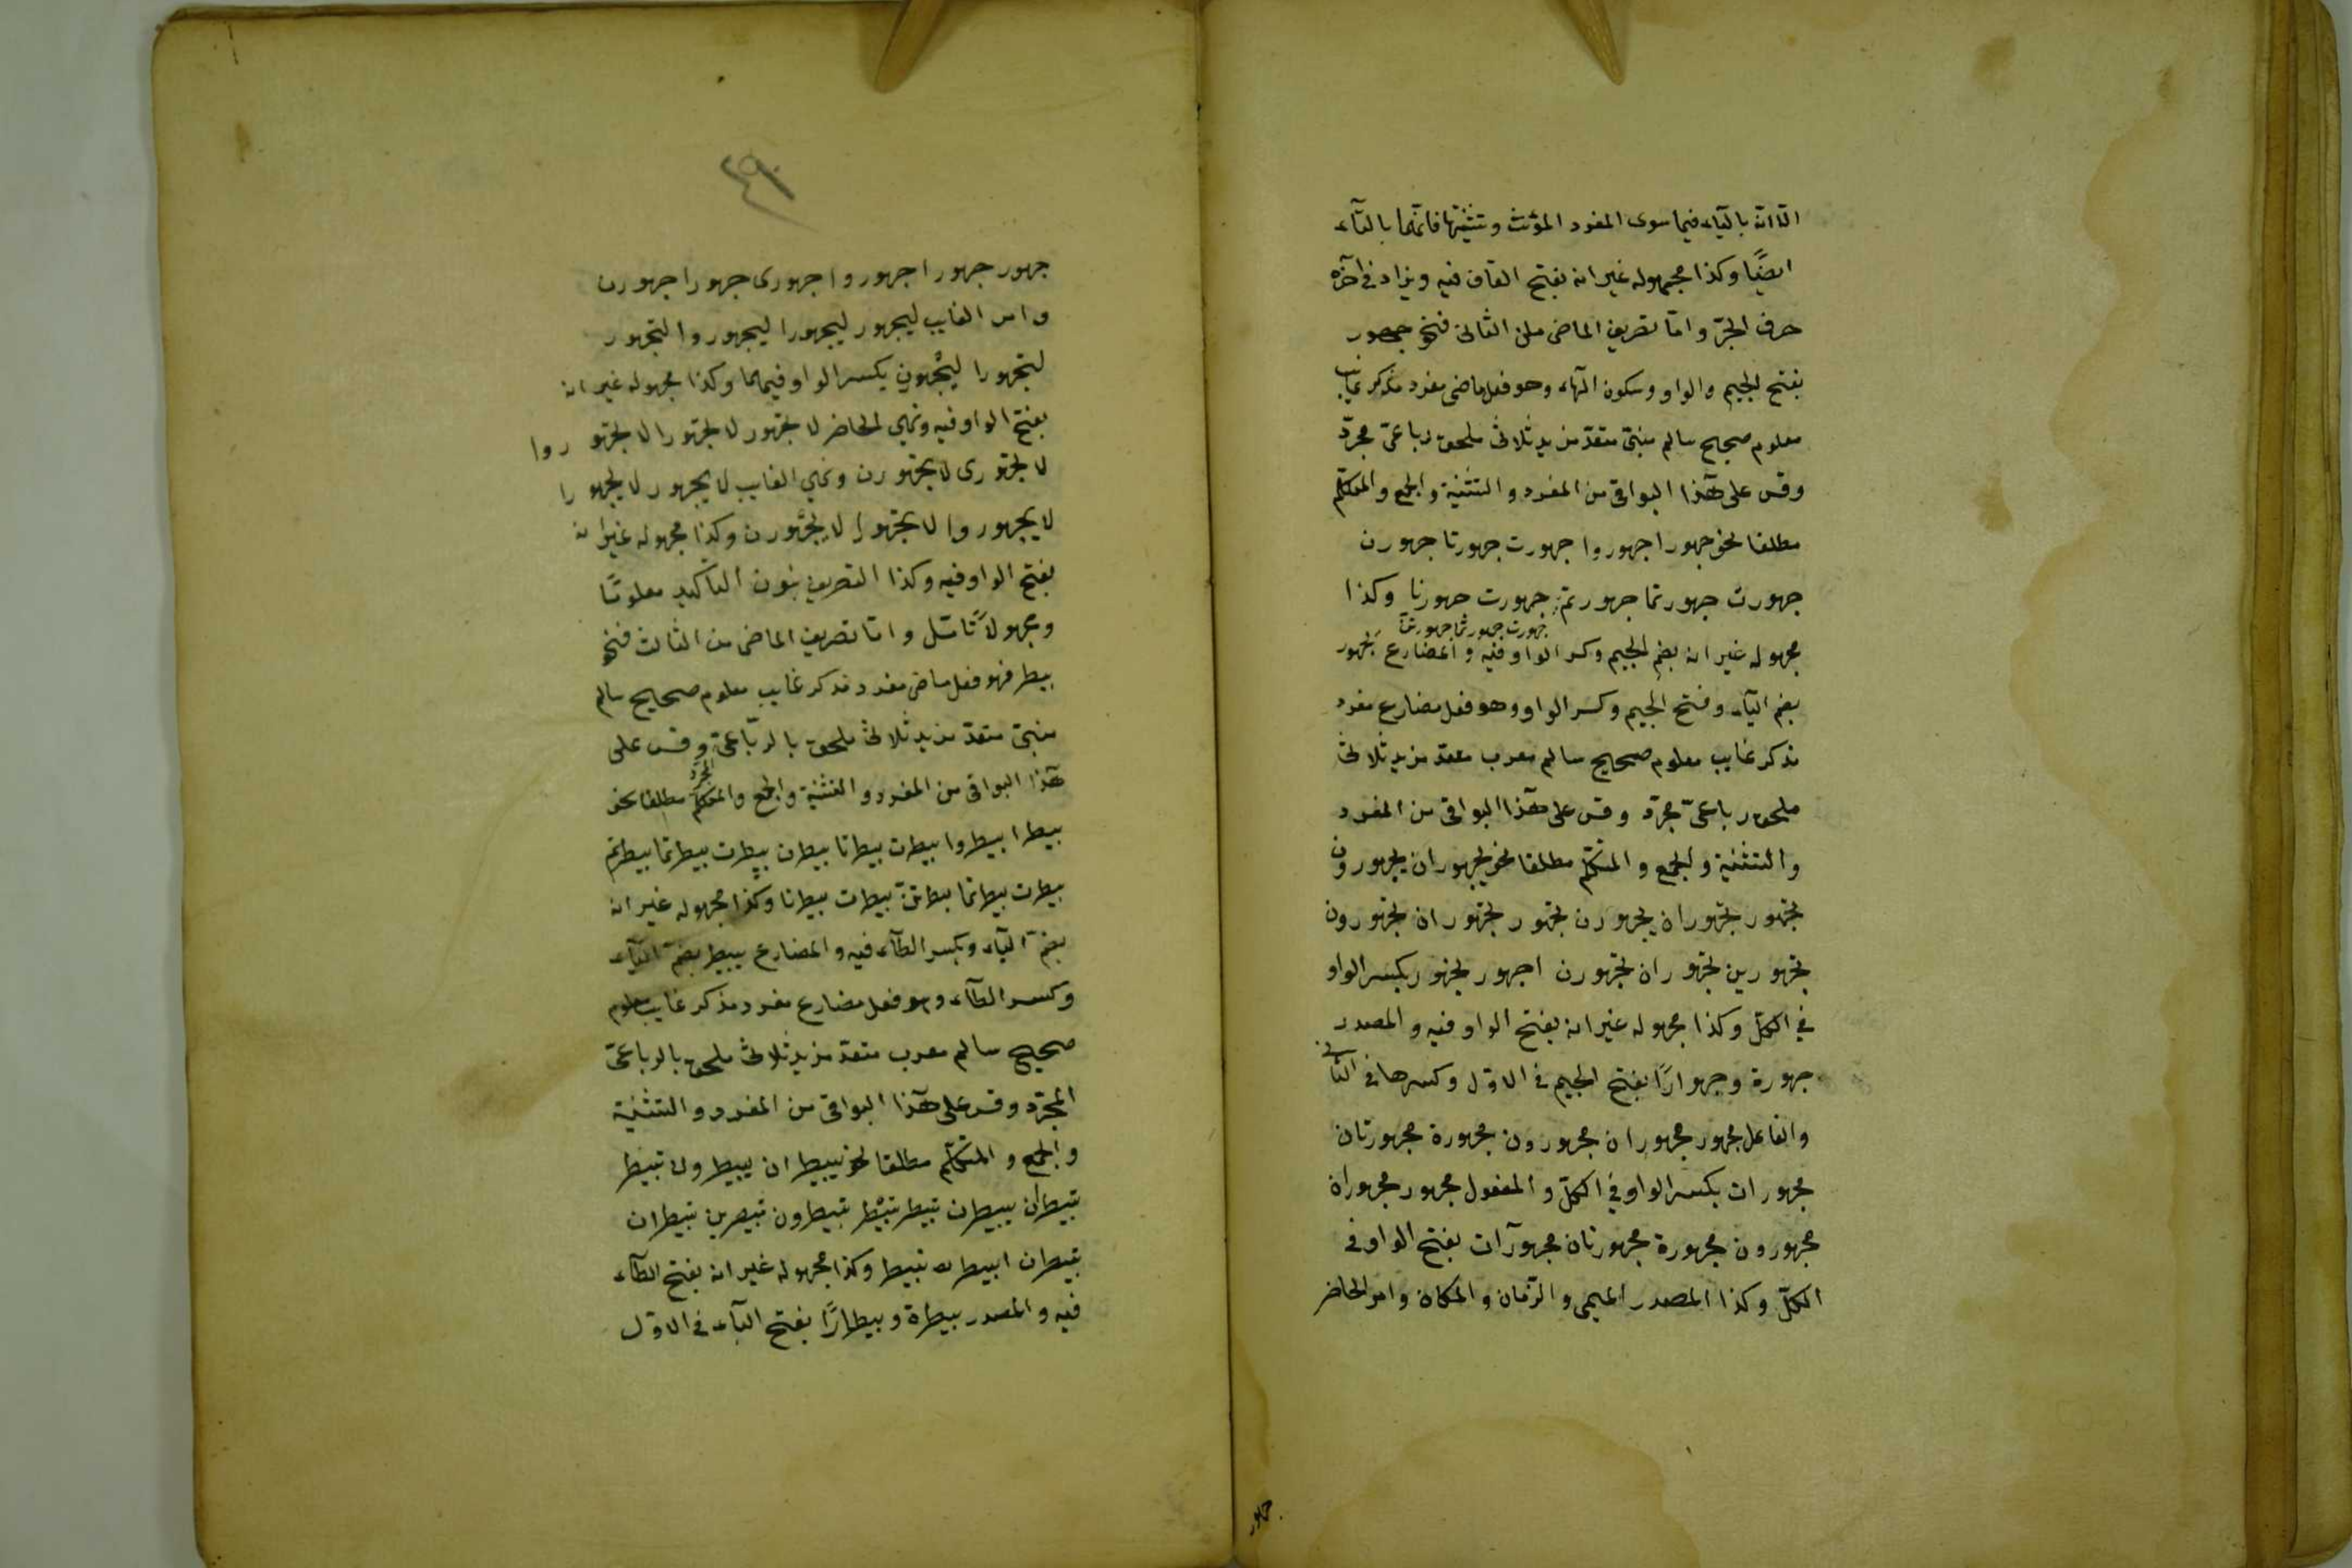 الّا انّه بالياء فيما سوى المفرد المؤنث وتثنيتها فانّهما بالتّاء
ايضًا وكذا مجهوله غير انه بفتح القاف فيه ويزاد في آخره
حرف الجرّ وامّا تصريف الماضى من الثانى فنحو جهور
بفتح الجيم والواو وسكون الهاء وهو فعل ماضى مفرد مذكر غايب
معلوم صحيح سالم مبنىّ متعدّ مزيد ثلاثى ملحق رباعىّ مجرّد
وقس على هذا البواقى من المفرد والتثنية والجمع والمتكلّم
مطلقا نحو جهورا جهوروا جهورت جهورتا جهورن
جهورت جهورتما جهورتم جهورت جهورنا وكذا
جهورت جهورتما جهورتنّ
مجهوله غير انه بضم الجيم وكسر الواو فيه والمضارع يجهور
بضم الياء وفتح الجيم وكسر الواو وهو فعل مضارع مفرد
مذكر غايب معلوم صحيح سالم معرب متعدّ مزيد ثلاثى
ملحق رباعىّ مجرّد وقس على هذا البواقى من المفرد
والتثنية والجمع والمتكلّم مطلقا نحو يجهوران يجهورون
تجهور تجهوران يجهورن تجهور تجهوران تجهورون
تجهورين تجهوران تجهورن اجهور نجهور بكسر الواو
في الكلّ وكذا مجهوله غير انه بفتح الواو فيه والمصدر
جهورة وجهوارًا بفتح الجيم في الاوّل وكسرها في الثانى
والفاعل مجهور مجهوران مجهورون مجهورة مجهورتان
مجهورات بكسر الواو في الكلّ والمفعول مجهور مجهوران
مجهورون مجهورة مجهورتان مجهورآت بفتح الواو في
الكلّ وكذا المصدر الميمى والزّمان والمكان وامر الحاضر
جهور
٤٩
جهور جهورا جهوروا جهورى جهورا جهورن
وامر الغايب ليجهور ليجهورا ليجهوروا لتجهور
لتجهورا ليجهورن بكسر الواو فيهما وكذا مجهوله غير انه
بفتح الواو فيه ونهى الحاضر لا تجهور لا تجهورا لا تجهوروا
لا تجهورى لا تجهورن ونهى الغايب لا يجهور لا يجهورا
لا يجهوروا لا تجهورا لا يجهورن وكذا مجهوله غير انه
بفتح الواو فيه وكذا التصريف بنون التأكيد معلومًا
ومجهولاً تأمّل وامّا تصريف الماضى من الثالث فنحو
بيطر فهو فعل ماضى مفرد مذكر غايب معلوم صحيح سالم
مبنىّ متعدّ مزيد ثلاثى ملحق بالرّباعىّ المجرّد وقس على
هذا البواقى من المفرد والتثنية والجمع والمتكلّم مطلقا نحو
بيطرا بيطروا بيطرت بيطرتا بيطرن بيطرت بيطرتما بيطرتم
بيطرت بيطرتما بيطرتنّ بيطرت بيطرنا وكذا مجهوله غير انه
بضمّ الباء وبكسر الطّاء فيه والمضارع يبيطر بضمّ الياء
وكسر الطّاء وهو فعل مضارع مفرد مذكر غايب معلوم
صحيح سالم معرب متعدّ مزيد ثلاثى ملحق بالرباعىّ
المجرّد وقس على هذا البواقى من المفرد والتثنية
والجمع والمتكلّم مطلقا نحو يبيطران يبيطرون تبيطر
تبيطران يبيطرن تبيطر تبيطر تبيطرون تبيطرين تبيطران
تبيطرن ابيطر نبيطر وكذا مجهوله غير انه بفتح الطّاء
فيه والمصدر بيطرة وبيطارًا بفتح الباء في الاوّل